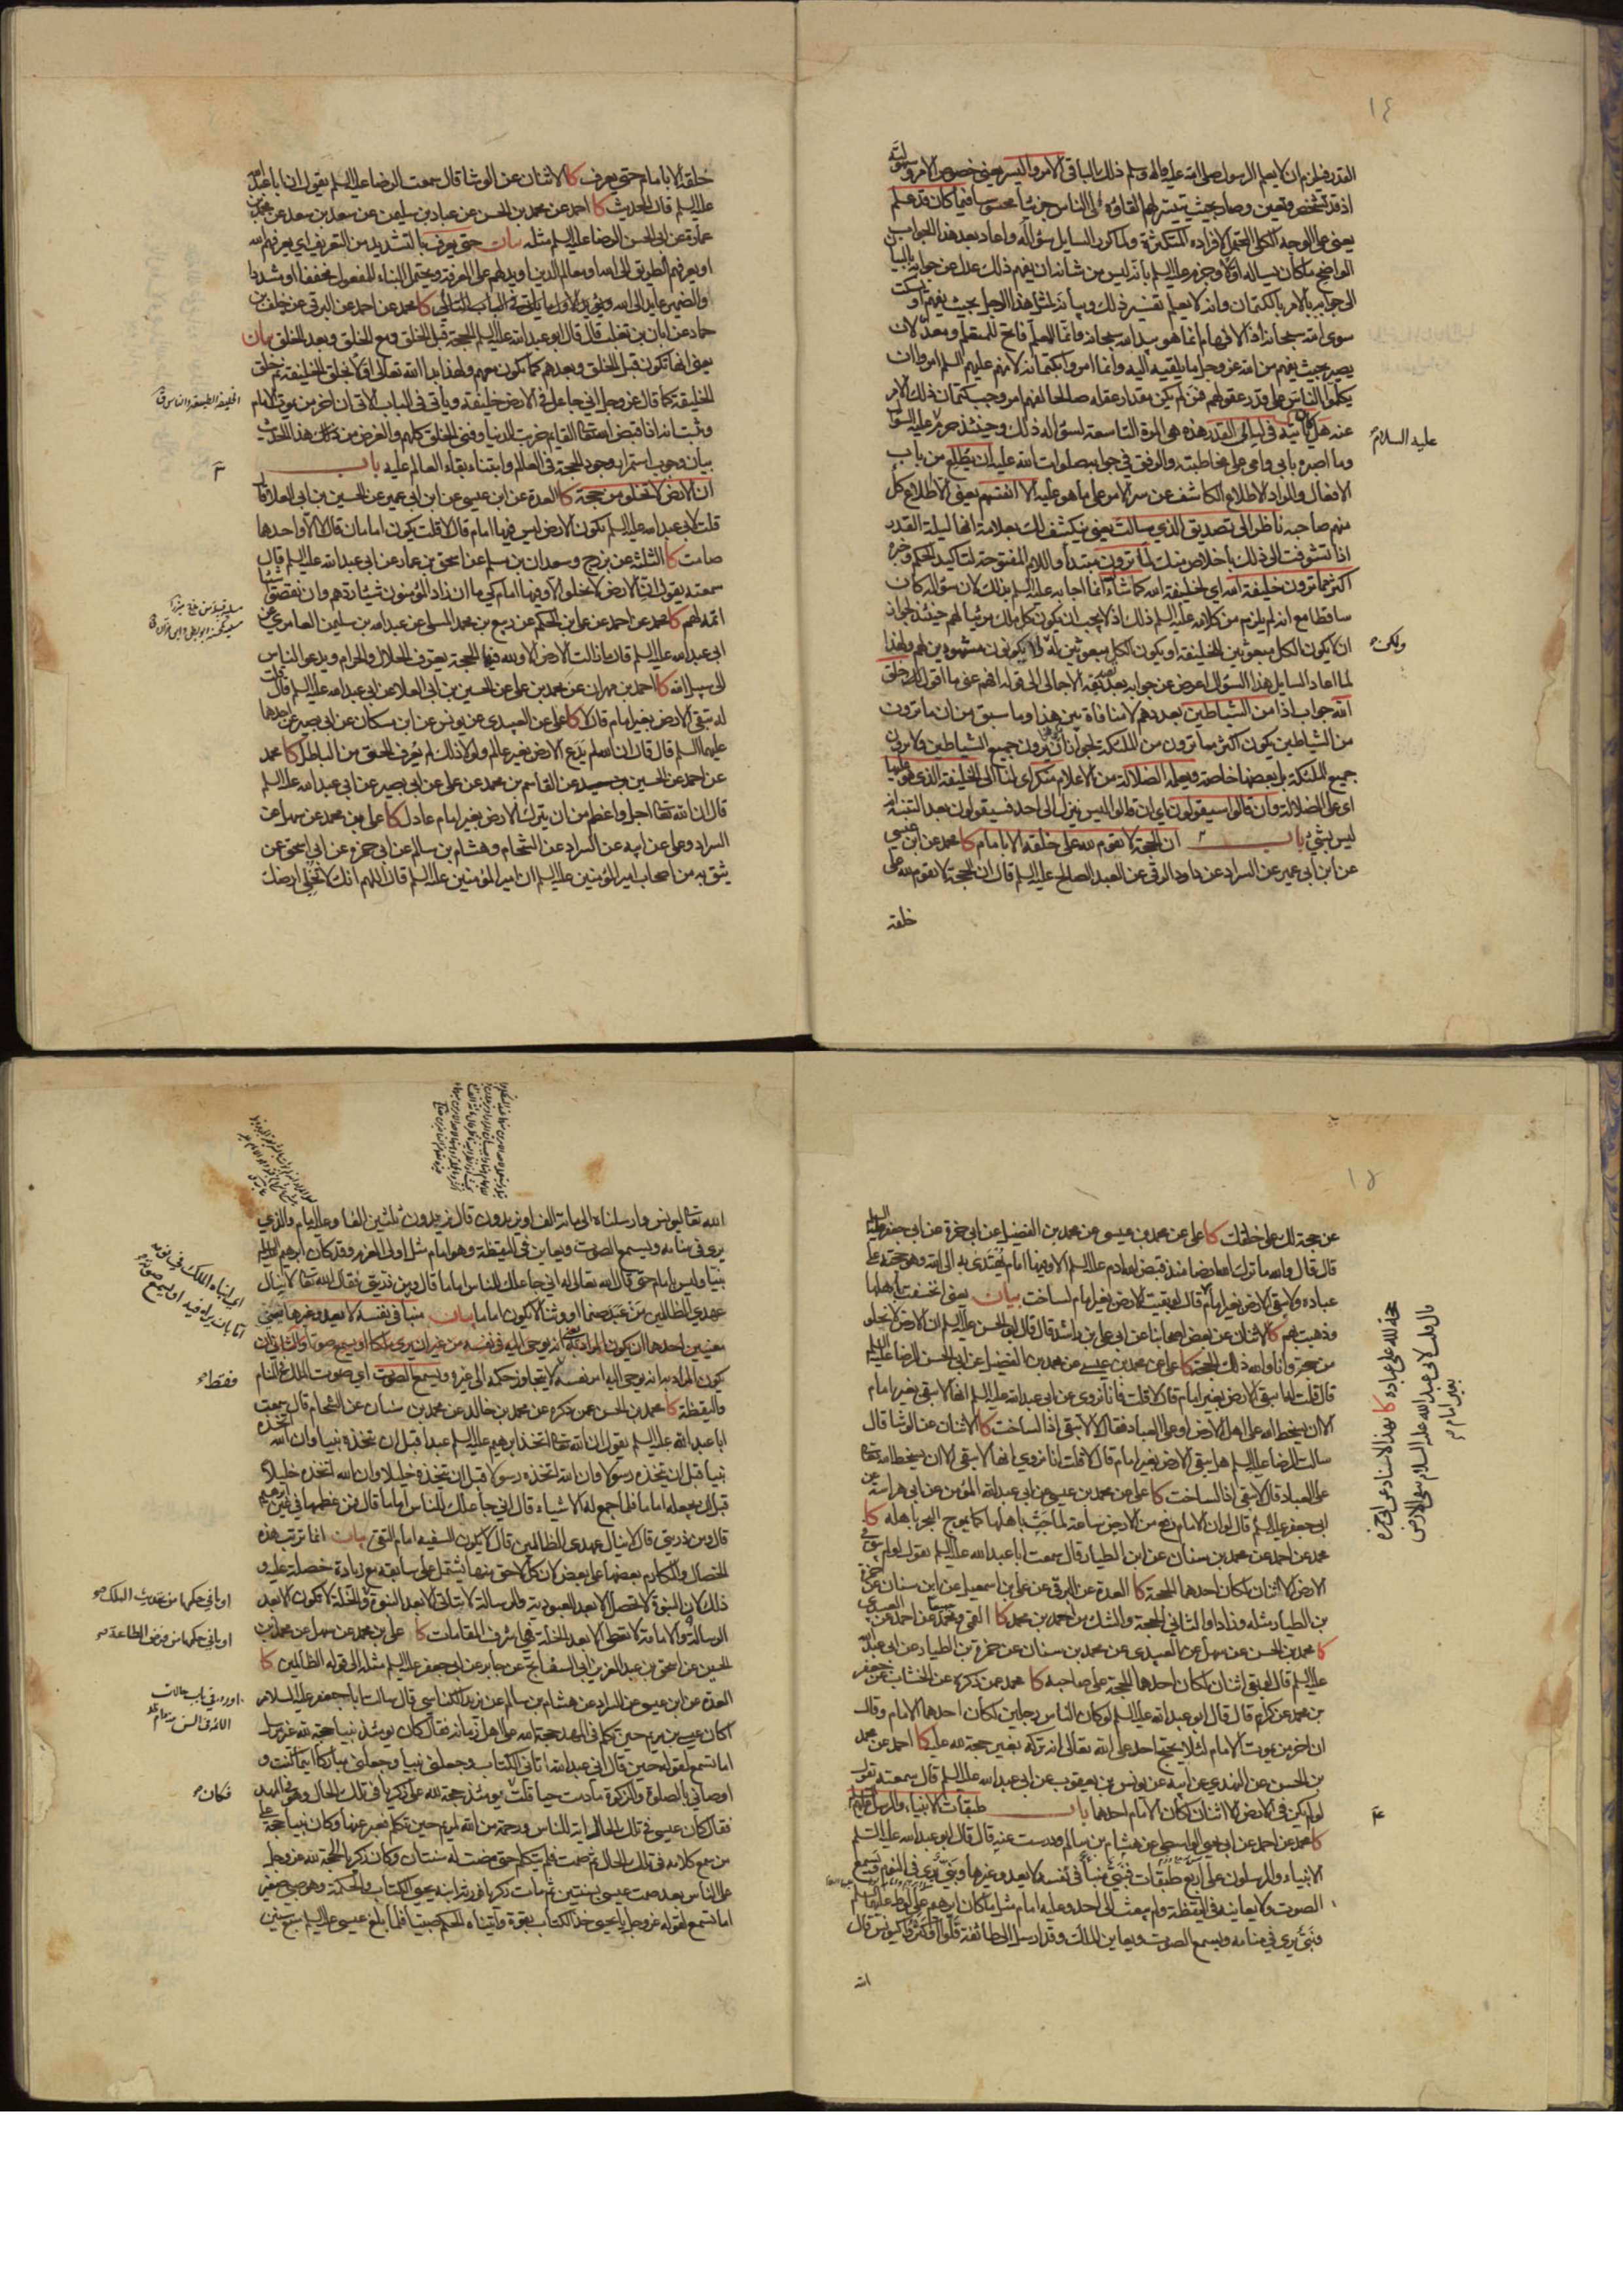 ١٤
القدر فيلزم ان لا يعلم الرسول صلى الله عليه واله وسلم ذلك الباقي الامر واليسر يعني خصوص الامر وسهولته
اذ قد تشخص وتعين وصار بحيث يتيسر لهم القاؤه الى الناس جزئيا محسوسا فيما كان قد علم
يعني على الوجه الكلي المحتمل لافراده المتكثرة ولما كرر السايل سؤاله واعاد بعد هذا الجواب
الواضح ما كان يساله اولا وجزم عليه السلم بانه ليس من شانه ان يفهم ذلك عدل عن جوابه بالبيان
الى جوابه بالامر بالكتمان وانه لا يعلم تفسير ذلك وبيانه لمثل هذا الرجل بحيث يفهم او يسكت
سوى الله سبحانه اذ الافهام انما هو بيد الله سبحانه وانما المعلم فاتح للمتعلم ومعد لان
يصير بحيث يفهم من الله عز وجل ما يلقيه اليه وانما امروا بكتمانه لانهم عليهم السلم امروا ان
يكلموا الناس على قدر عقولهم فمن لم يكن مقدار عقله صالحا لفهم امر وجب كتمان ذلك الامر
عنه هل كان ياتيه في ليالي القدر هذه هي المرة التاسعة لسؤاله ذلك وحينئذ حرم عليه السؤال
عليه السلام
وما اصبره بابي وامي على مخاطبته والوفق في جوابه صلوات الله عليه ان يطلع من باب
الافعال والمراد الاطلاع الكاشف عن سر الامر على ما هو عليه الا انفسهم يعني الاطلاع كل
منهم صاحبه ناظر الى تصديق الذي سالت يعني ينكشف لك بعلامة انها ليلة القدر
اذا تشوفت الى ذلك باخلاص منك لما ترون مبتدأ واللام المفتوحة لتاكيد الحكم وخبره
اكثر مما ترون خليفة الله اي لخليفة الله كما شاء الله انما اجابه عليه السلم بذلك لان سؤاله كان
ساقطا مع انه لم يلزم من كلامه عليه السلم ذلك اذ لا يجب ان يكون كل ملك مرئيا لهم حينئذ لجواز
ان لا يكون الكل مبعوثين للخليفة او يكون الكل مبعوثين له ولا يكونون مشهودين لهم ولهذا
ولكن
لما اعاد السايل هذا السؤال اعرض عن جوابه بعد تنبيهه الاجمالي الى قوله افهم عني ما اقول لك خلق
الله جواب اذا من الشياطين بعددهم لا منافاة بين هذا وما سبق من ان ما ترون
من الشياطين يكون اكثر مما ترون من الملئكة لجواز ان يرون جميع الشياطين ولا يرون
جميع الملئكة بل بعضها خاصة ويعلمه الضلالة من الاعلام شكر اي لنا الى الخليفة الذي هو عليها
اي على الضلالة وان قالوا سيقولون اي ان قالوا ليس ينزل الى احد فسيقولون بعد التنبه انه
ليس بشيء باب ان الحجة لا تقوم لله على خلقه الا بامام كا محمد عن ابن عيسى
عن ابن ابي عمير عن السراد عن داود الرقي عن العبد الصالح عليه السلم قال ان الحجة لا تقوم لله على
خلقه
خلقه الا بامام حتى يعرف كا الاثنان عن الوشا قال سمعت الرضا عليه السلم يقول ان ابا عبد الله
عليه السلم قال الحديث كا احمد عن محمد بن الحسن عن عباد بن سليمن عن سعد بن سعد عن محمد بن
عمارة عن ابي الحسن الرضا عليه السلم مثله بيان حتى يعرف بالتشديد من التعريف اي يعرفهم الله
او يعرفهم الطريق الى الله ومعالم الدين او يدلهم على المعرفة ويحتمل البناء للمفعول مخففا او مشددا
والضمير عايد الى الله ويؤيد الاول ما ياتي في الباب التالي كا محمد عن احمد عن البرقي عن خلف بن
حماد عن ابان بن تغلب قال قال ابو عبد الله عليه السلم الحجة قبل الخلق ومع الخلق وبعد الخلق بيان
يعني انها تكون قبل الخلق وبعدهم كما يكون معهم ولهذا بدا الله تعالى اولا بخلق الخليفة ثم خلق
الخليقة كما قال عز وجل اني جاعل في الارض خليفة وياتي في الباب الاتي ان اخر من يموت الامام
وثبت انه اذا قبض الله تعالى القايم خربت الدنيا وفني الخلق كلهم والغرض من ذلك هذا الحديث
بيان وجوب استمرار وجود الحجة في العالم وابتناء بقاء العالم عليه باب
ان الارض لا تخلو من حجة كا العدة عن ابن عيسى عن ابن ابي عمير عن الحسين بن ابي العلا قال
قلت لابي عبد الله عليه السلم تكون الارض ليس فيها امام قال لا قلت يكون امامان قال لا الا واحدهما
صامت كا الثلثة عن بزرج وسعدان بن مسلم عن اسحق بن عمار عن ابي عبد الله عليه السلم قال
سمعته يقول ان الارض لا تخلو الا وفيها امام كي ما ان زاد المؤمنون شيئا ردهم وان نقصوا شيئا
اتمه لهم كا محمد عن احمد عن علي بن الحكم عن ربيع بن محمد المسلي عن عبد الله بن سليمن العامري عن
ابي عبد الله عليه السلم قال ما زالت الارض الا ولله فيها الحجة يعرف الحلال والحرام ويدعو الناس
الى سبيل الله كا احمد بن مهران عن محمد بن علي عن الحسين بن ابي العلا عن ابي عبد الله عليه السلم قال قلت
له تبقى الارض بغير امام قال لا كا علي عن العبيدي عن يونس عن ابن مسكان عن ابي بصير عن احدهما
عليهما السلم قال قال ان الله لم يدع الارض بغير عالم ولولا ذلك لم يعرف الحق من الباطل كا محمد
عن احمد عن الحسين بن سعيد عن القاسم بن محمد عن علي عن ابي بصير عن ابي عبد الله عليه السلم
قال ان الله تعالى اجل واعظم من ان يترك الارض بغير امام عادل كا علي بن محمد عن سهل عن
السراد وعلي عن ابيه عن السراد عن الشحام وهشام بن سالم عن ابي حمزة عن ابي اسحق عمن
يثق به من اصحاب امير المؤمنين عليه السلم ان امير المؤمنين عليه السلم قال اللهم انك لا تخلي ارضك
١٥
من حجة لك على خلقك كا علي عن محمد بن عيسى عن محمد بن الفضيل عن ابي حمزة عن ابي جعفر عليه السلم
قال قال والله ما ترك الله ارضا منذ قبض الله ادم عليه السلم الا وفيها امام يهتدى به الى الله وهو حجته على
عباده ولا تبقى الارض بغير امام قال لو بقيت الارض بغير امام لساخت بيان يعني انخسفت باهلها
وذهبت بهم كا الاثنان عن بعض اصحابنا عن ابي علي بن راشد قال قال ابو الحسن عليه السلم ان الارض لا تخلو
من حجة وانا والله ذلك الحجة كا علي عن محمد بن عيسى عن محمد بن الفضيل عن ابي الحسن الرضا عليه السلم
قال قلت له اتبقى الارض بغير امام قال لا قلت فانا نروي عن ابي عبد الله عليه السلم انها لا تبقى بغير امام
الا ان يسخط الله على اهل الارض او على العباد فقال لا لا تبقى اذا لساخت كا الاثنان عن الوشا قال
سالت الرضا عليه السلم هل تبقى الارض بغير امام قال لا قلت انا نروي انها لا تبقى الا ان يسخط الله تعالى
على العباد قال لا تبقى اذا لساخت كا علي عن محمد بن عيسى عن ابي عبد الله المؤمن عن ابي هراسة عن
ابي جعفر عليه السلم قال لو ان الامام رفع من الارض ساعة لماجت باهلها كما يموج البحر باهله كا
محمد عن احمد عن محمد بن سنان عن ابن الطيار قال سمعت ابا عبد الله عليه السلم يقول لو لم يبق في
الارض الا اثنان لكان احدهما الحجة كا العدة عن البرقي عن علي بن اسمعيل عن ابن سنان عن حمزة
بن الطيار مثله وزاد او الثاني الحجة والشك من احمد بن محمد كا القمي ومحمد جميعا عن احمد عن العبيدي
كا محمد بن الحسن عن سهل عن العبيدي عن محمد بن سنان عن حمزة بن الطيار عن ابي عبد الله
عليه السلم قال لو بقي اثنان لكان احدهما الحجة على صاحبه كا محمد عمن ذكره عن الخشاب عن جعفر
بن محمد عن كرام قال قال ابو عبد الله عليه السلم لو كان الناس رجلين لكان احدهما الامام وقال
ان اخر من يموت الامام لئلا يحتج احد على الله تعالى انه تركه بغير حجة لله عليه كا احمد عن محمد
بن الحسن عن النهدي عن ابيه عن يونس بن يعقوب عن ابي عبد الله عليه السلم قال سمعته يقول
لو لم يكن في الارض الا اثنان لكان الامام احدهما باب طبقات الانبياء والرسل عليهم السلم
كا محمد عن احمد عن ابي يحيى الواسطي عن هشام بن سالم ودرست عنه قال قال ابو عبد الله عليه السلم
الانبياء والمرسلون على اربع طبقات فنبي منبأ في نفسه لا يعدو غيرها ونبي يرى في النوم ويسمع
الصوت ولا يعاينه في اليقظة ولم يبعث الى احد وعليه امام مثل ما كان ابرهيم على لوط عليهما السلم
ونبي يرى في منامه ويسمع الصوت ويعاين الملك وقد ارسل الى طائفة قلوا او كثروا كيونس قال
الله
حجة لله على عباده كا بهذا الاسناد عن ابي حمزة
قال قلت لابي عبد الله عليه السلام تبقى الارض
بغير امام
الله تعالى ليونس وارسلناه الى مائة الف او يزيدون قال يزيدون ثلثين الفا وعليه امام والذي
يرى في منامه ويسمع الصوت ويعاين في اليقظة وهو امام مثل اولي العزم وقد كان ابرهيم عليه السلم
نبيا وليس بامام حتى قال الله تعالى له اني جاعلك للناس اماما قال ومن ذريتي فقال الله تعالى لا ينال
عهدي الظالمين من عبد صنما او وثنا لا يكون اماما بيان منبأ في نفسه لا يعدو غيرها يعني
معنيين احدهما ان يكون المراد به انه يوحى اليه في نفسه من غير ان يرى ملكا او يسمع صوتا والثاني ان
يكون المراد به انه يوحى اليه امر نفسه لا يتجاوز حكمه الى غيره ويسمع الصوت اي صوت الملك في المنام
فقط
واليقظة كا محمد بن الحسن عمن ذكره عن محمد بن خالد عن محمد بن سنان عن الشحام قال سمعت
ابا عبد الله عليه السلم يقول ان الله تعالى اتخذ ابرهيم عليه السلم عبدا قبل ان يتخذه نبيا وان الله اتخذه
نبيا قبل ان يتخذه رسولا وان الله اتخذه رسولا قبل ان يتخذه خليلا وان الله اتخذه خليلا
قبل ان يجعله اماما فلما جمع له الاشياء قال اني جاعلك للناس اماما قال فمن عظمها في عين ابرهيم
قال ومن ذريتي قال لا ينال عهدي الظالمين قال لا يكون السفيه امام التقي بيان انما ترتب هذه
الخصال والمكارم بعضها على بعض لان كل لاحق منها يشتمل على سابقه مع زيادة خصلة عليه و
ذلك لان النبوة لا تحصل الا بعد العبودية والرسالة لا تتاتى الا بعد النبوة والخلة لا تكون الا بعد
الرسالة والامامة لا تنحصل الا بعد الخلة فهي اشرف المقامات كا علي بن محمد عن سهل عن محمد بن
الحسين عن اسحق بن عبد العزيز ابي السفاتج عن جابر عن ابي جعفر عليه السلم مثله الى قوله الظالمين كا
العدة عن ابن عيسى عن السراد عن هشام بن سالم عن يزيد الكناسي قال سالت ابا جعفر عليه السلام
اكان عيسى بن مريم حين تكلم في المهد حجة الله على اهل زمانه فقال كان يومئذ نبيا حجة لله غير مرسل
اما تسمع لقوله حين قال اني عبد الله اتاني الكتاب وجعلني نبيا وجعلني مباركا اينما كنت و
اوصاني بالصلوة والزكوة ما دمت حيا قلت يومئذ حجة لله على زكريا في تلك الحال وهو في المهد
فكان
فقال كان عيسى في تلك الحال اية للناس ورحمة من الله لمريم حين تكلم فعبر عنها وكان نبيا حجة على
من سمع كلامه في تلك الحال ثم صمت فلم يتكلم حتى مضت له سنتان وكان زكريا الحجة لله عز وجل
على الناس بعد صمت عيسى بسنتين ثم مات زكريا فورثه ابنه يحيى الكتاب والحكمة وهو صبي صغير
اما تسمع لقوله عز وجل يا يحيى خذ الكتاب بقوة واتيناه الحكم صبيا فلما بلغ عيسى عليه السلم سبع سنين